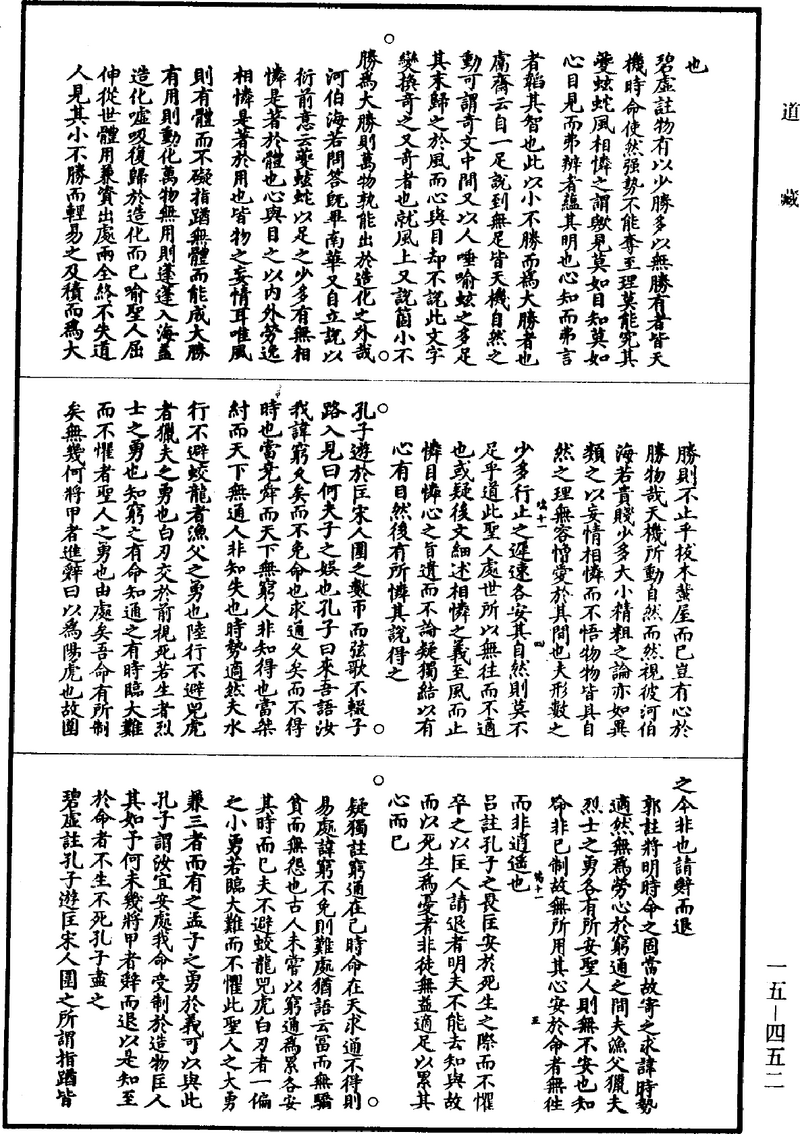 道藏
也
碧虛註物有以少勝多以無勝有者皆天
機時命使然强勢不能奪至理莫能究其
夔蚿蛇風相憐之謂歟見莫如目知莫如
心目見而弗辨者蘊其明也心知而弗言
者韜其智也此以小不勝而爲大勝者也
鬳齋云自一足說到無足皆天機自然之
動可謂奇文中間又以人唾喻蚿之多足
其末歸之於風而心與目却不說此文字
變換奇之又奇者也就風上又說箇小不
勝爲大勝則萬物孰能出於造化之外哉
河伯海若問答旣畢南華又自立說以
衍前意云夔蚿蛇以足之少多有無相
憐是著於體也心與目之以內外勞逸
相憐是著於用也皆物之妄情耳唯風
則有體而不礙指蹈無體而能成大勝
有用則動化萬物無用則蓬蓬入海蓋
造化噓吸復歸於造化而已喻聖人屈
伸從世體用兼資出處兩全終不失道
人見其小不勝而輕易之及積而爲大
勝則不止乎拔木蜚屋而已豈有心於
勝物哉天機所動自然而然視彼河伯
海若貴賤少多大小精粗之論亦如異
類之以妄情相憐而不悟物物皆具自
然之理無容憎愛於其間也夫形數之
少多行止之遲速各安其自然則莫不
足乎道此聖人處世所以無往而不適
也或疑後文細述相憐之義至風而止
憐目憐心之旨遺而不論疑獨結以有
心有目然後有所憐其說得之
孔子遊於匡宋人圍之數帀而弦歌不輟子
路入見曰何夫子之娛也孔子曰來吾語汝
我諱窮久矣而不免命也求通久矣而不得
時也當堯舜而天下無窮人非知得也當桀
紂而天下無通人非知失也時勢適然夫水
行不避蛟龍者漁父之勇也陸行不避兕虎
者獵夫之勇也白刃交於前視死若生者烈
士之勇也知窮之有命知通之有時臨大難
而不懼者聖人之勇也由處矣吾命有所制
矣無幾何將甲者進辭曰以爲陽虎也故圍
之今非也請辭而退
郭註將明時命之固當故寄之求諱時勢
適然無爲勞心於窮通之間夫漁父獵夫
烈士之勇各有所安聖人則無不安也知
命非己制故無所用其心安於命者無往
而非逍遙也
呂註孔子之畏匡安於死生之際而不懼
卒之以匡人請退者明夫不能去知與故
而以死生爲憂者非徒無益適足以累其
心而已
疑獨註窮通在己時命在天求通不得則
易處諱窮不免則難處猶語云冨而無驕
貧而無怨也古人未常以窮通爲累各安
其時而已夫不避蛟龍兕虎白刃者一偏
之小勇若臨大難而不懼此聖人之大勇
兼三者而有之孟子之勇於義可以與此
孔子謂汝宜安處我命受制於造物匡人
其如予何未幾將甲者辭而退以是知至
於命者不生不死孔子盡之
碧虛註孔子遊匡宋人圍之所謂指蹈皆
一五—四五二